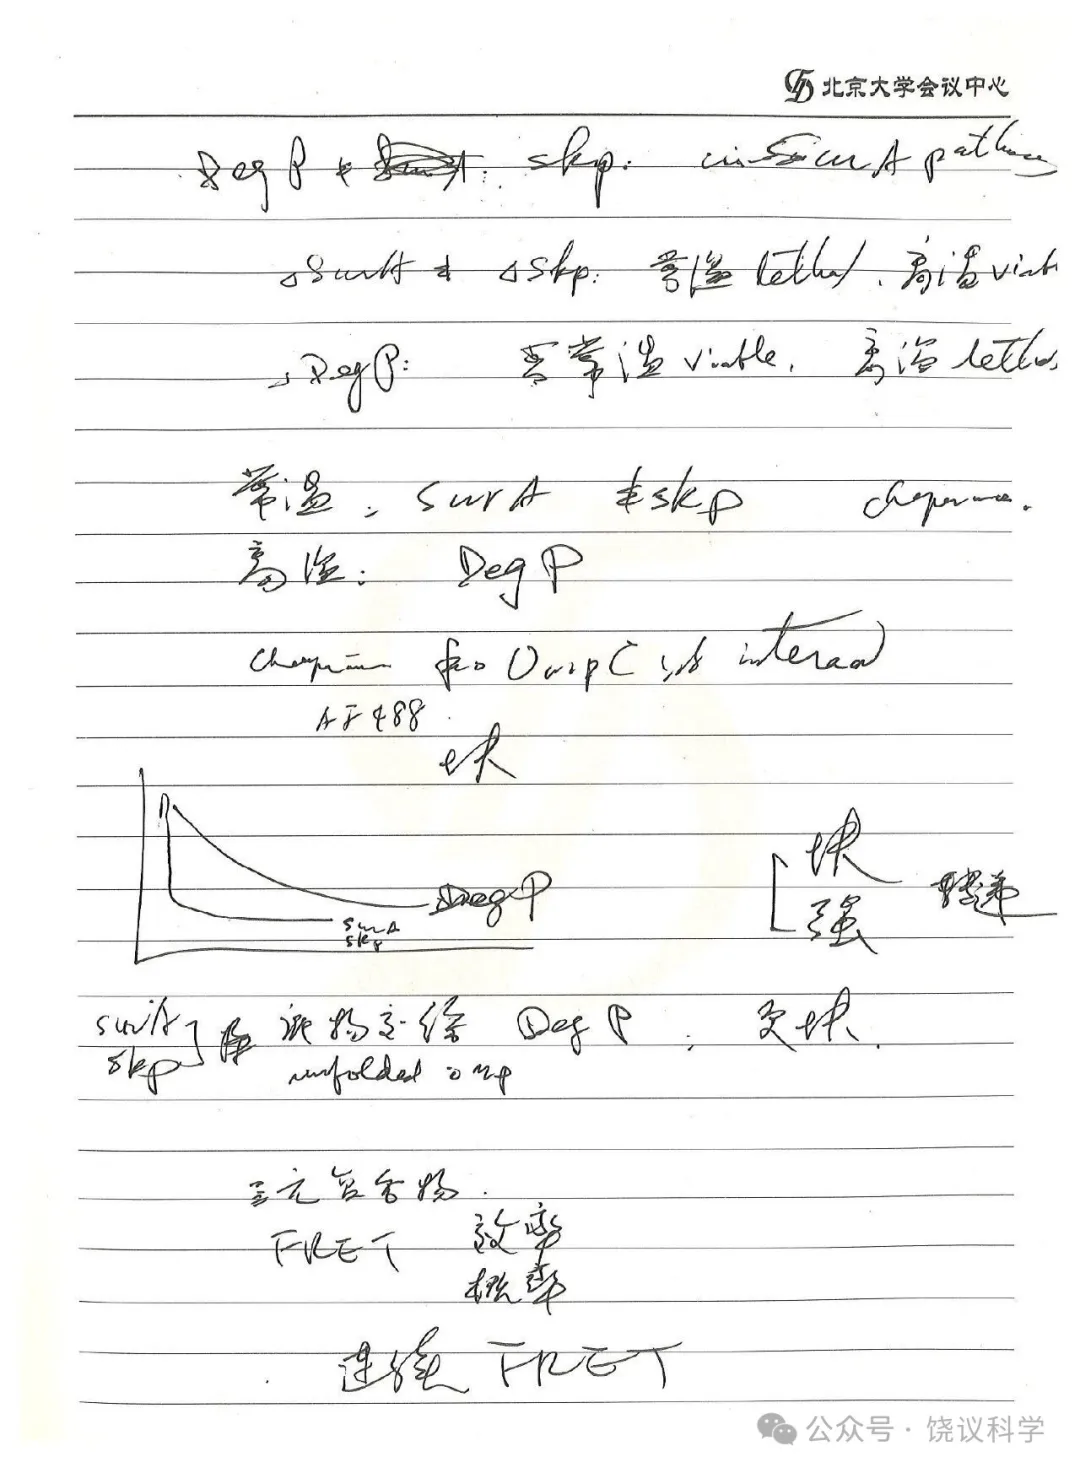 北京大学会议中心
DegP * skp: in SurA pathway
△SurA * △Skp: 常温 lethal, 高温 viabl
△DegP: 常温 viable, 高温 lethal
常温: SurA *skp chaperone.
高温: DegP
chaperone OmpC interact
AF488
快
DegP
SurA
skp
快
强
SurA
skp
底物交给 DegP, 更快.
unfolded omp
三元复合物.
FRET 效率
概率
连续 FRET
公众号 · 饶议科学